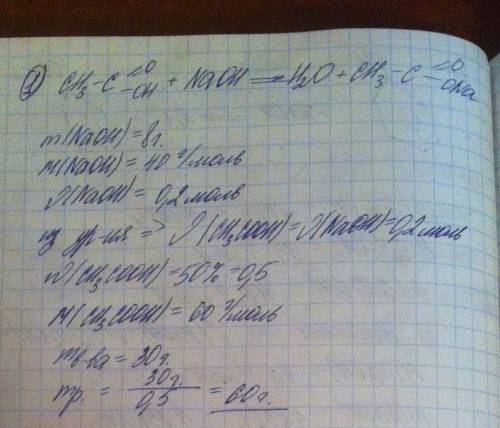 1) CH₃-C(=O)-OH + NaOH = H₂O + CH₃-C(=O)-ONa
m(NaOH) = 8г.
M(NaOH) = 40 г/моль
ν(NaOH) = 0,2 моль
из ур-ия => ν(CH₃COOH) = ν(NaOH) = 0,2 моль
ω(CH₃COOH) = 50% = 0,5
M(CH₃COOH) = 60 г/моль
m в-ва = 30 г.
m р. = 30 г. / 0,5 = 60 г.